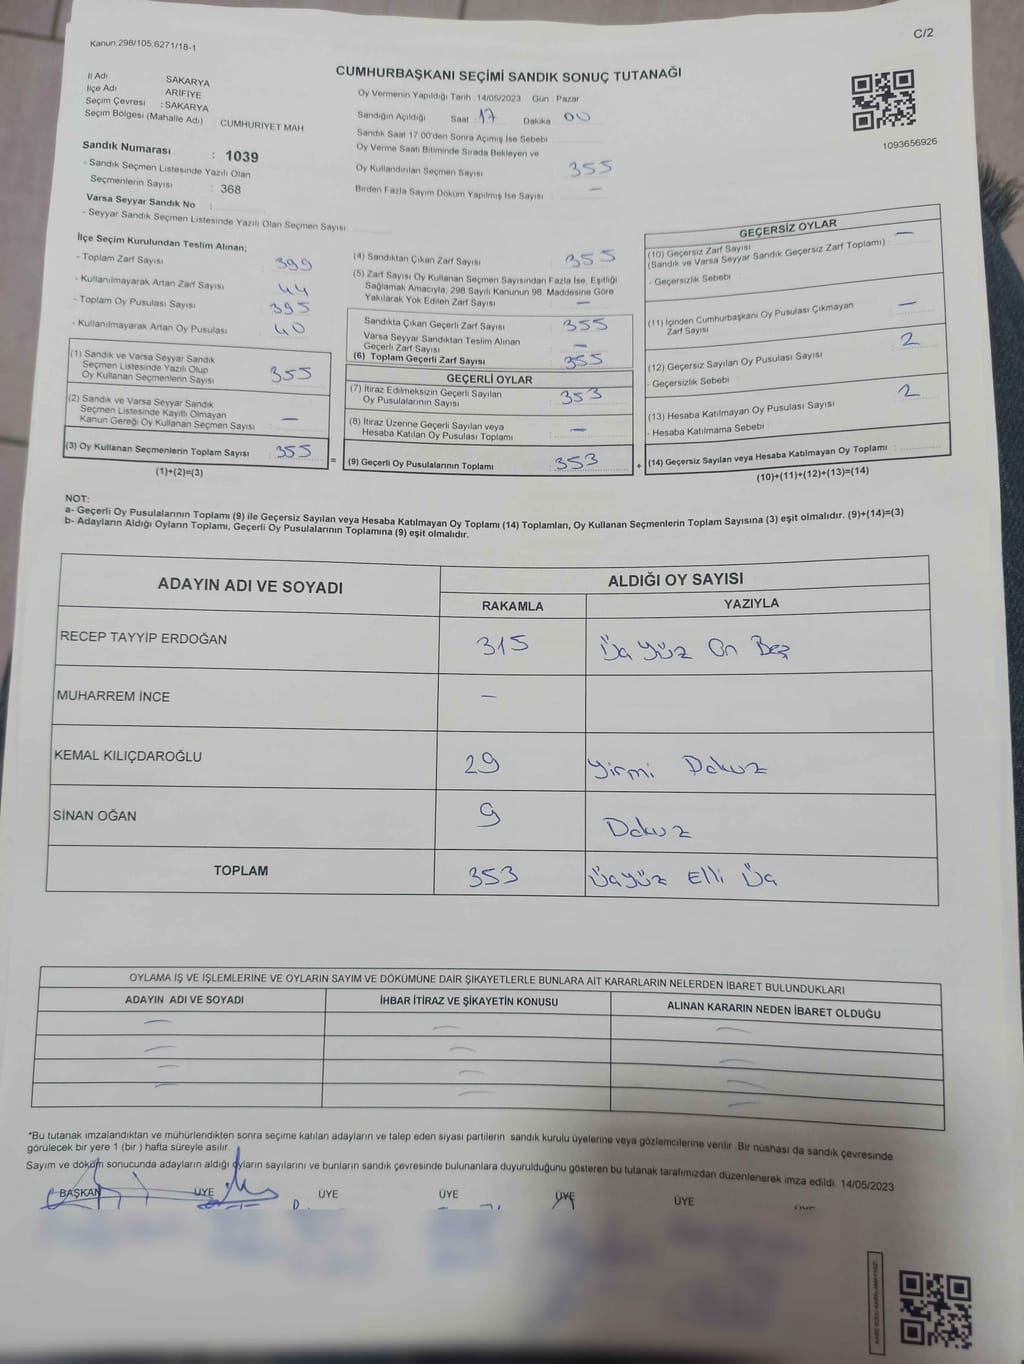 Kanun:298/105,6271/18-1
C/2
CUMHURBAŞKANI SEÇİMİ SANDIK SONUÇ TUTANAĞI
İl Adı SAKARYA
İlçe Adı : ARİFİYE
Seçim Çevresi : SAKARYA
Seçim Bölgesi (Mahalle Adı) CUMHURIYET MAH.
Sandık Numarası : 1039
- Sandık Seçmen Listesinde Yazılı Olan
Seçmenlerin Sayısı : 368
Varsa Seyyar Sandık No :
- Seyyar Sandık Seçmen Listesinde Yazılı Olan Seçmen Sayısı:
Oy Vermenin Yapıldığı Tarih :14/05/2023 Gün : Pazar
Sandığın Açıldığı Saat : 17 Dakika : 00
Sandık Saat 17.00'den Sonra Açımış İse Sebebi :
Oy Verme Saati Bitiminde Sırada Bekleyen ve
Oy Kullandırılan Seçmen Sayısı 355
Birden Fazla Sayım Döküm Yapılmış İse Sayısı : —
1093656926
İlçe Seçim Kurulundan Teslim Alınan;
- Toplam Zarf Sayısı 399
- Kullanılmayarak Artan Zarf Sayısı 44
- Toplam Oy Pusulası Sayısı 395
- Kullanılmayarak Artan Oy Pusulası 40
(1) Sandık ve Varsa Seyyar Sandık
Seçmen Listesinde Yazılı Olup
Oy Kullanan Seçmenlerin Sayısı 355
(2) Sandık ve Varsa Seyyar Sandık
Seçmen Listesinde Kayıtlı Olmayan
Kanun Gereği Oy Kullanan Seçmen Sayısı : —
(3) Oy Kullanan Seçmenlerin Toplam Sayısı 355
(1)+(2)=(3)
(4) Sandıktan Çıkan Zarf Sayısı 355
(5) Zarf Sayısı Oy Kullanan Seçmen Sayısından Fazla İse, Eşitliği
Sağlamak Amacıyla, 298 Sayılı Kanunun 98. Maddesine Göre
Yakılarak Yok Edilen Zarf Sayısı : —
Sandıkta Çıkan Geçerli Zarf Sayısı 355
Varsa Seyyar Sandıktan Teslim Alınan
Geçerli Zarf Sayısı —
(6) Toplam Geçerli Zarf Sayısı 355
GEÇERLİ OYLAR
(7) İtiraz Edilmeksizin Geçerli Sayılan
Oy Pusulalarının Sayısı 353
(8) İtiraz Üzerine Geçerli Sayılan veya
Hesaba Katılan Oy Pusulası Toplamı —
= (9) Geçerli Oy Pusulalarının Toplamı 353
GEÇERSİZ OYLAR
(10) Geçersiz Zarf Sayısı —
(Sandık ve Varsa Seyyar Sandık Geçersiz Zarf Toplamı) :
- Geçersizlik Sebebi :
(11) İçinden Cumhurbaşkanı Oy Pusulası Çıkmayan
Zarf Sayısı —
(12) Geçersiz Sayılan Oy Pusulası Sayısı 2
- Geçersizlik Sebebi :
(13) Hesaba Katılmayan Oy Pusulası Sayısı 2
- Hesaba Katılmama Sebebi :
+ (14) Geçersiz Sayılan veya Hesaba Katılmayan Oy Toplamı :
(10)+(11)+(12)+(13)=(14)
NOT:
a- Geçerli Oy Pusulalarının Toplamı (9) ile Geçersiz Sayılan veya Hesaba Katılmayan Oy Toplamı (14) Toplamları, Oy Kullanan Seçmenlerin Toplam Sayısına (3) eşit olmalıdır. (9)+(14)=(3)
b- Adayların Aldığı Oyların Toplamı, Geçerli Oy Pusulalarının Toplamına (9) eşit olmalıdır.
ADAYIN ADI VE SOYADI ALDIĞI OY SAYISI
RAKAMLA YAZIYLA
RECEP TAYYİP ERDOĞAN 315 Üçyüz On Beş
MUHARREM İNCE —
KEMAL KILIÇDAROĞLU 29 Yirmi Dokuz
SİNAN OĞAN 9 Dokuz
TOPLAM 353 Üçyüz Elli Üç
OYLAMA İŞ VE İŞLEMLERİNE VE OYLARIN SAYIM VE DÖKÜMÜNE DAİR ŞİKAYETLERLE BUNLARA AİT KARARLARIN NELERDEN İBARET BULUNDUKLARI
ADAYIN ADI VE SOYADI İHBAR İTİRAZ VE ŞİKAYETİN KONUSU ALINAN KARARIN NEDEN İBARET OLDUĞU
— — —
— — —
— — —
— — —
*Bu tutanak imzalandıktan ve mühürlendikten sonra seçime katılan adayların ve talep eden siyasi partilerin sandık kurulu üyelerine veya gözlemcilerine verilir. Bir nüshası da sandık çevresinde
görülecek bir yere 1 (bir) hafta süreyle asılır.
Sayım ve döküm sonucunda adayların aldığı oyların sayılarını ve bunların sandık çevresinde bulunanlara duyurulduğunu gösteren bu tutanak tarafımızdan düzenlenerek imza edildi. 14/05/2023
BAŞKAN ÜYE ÜYE ÜYE ÜYE ÜYE